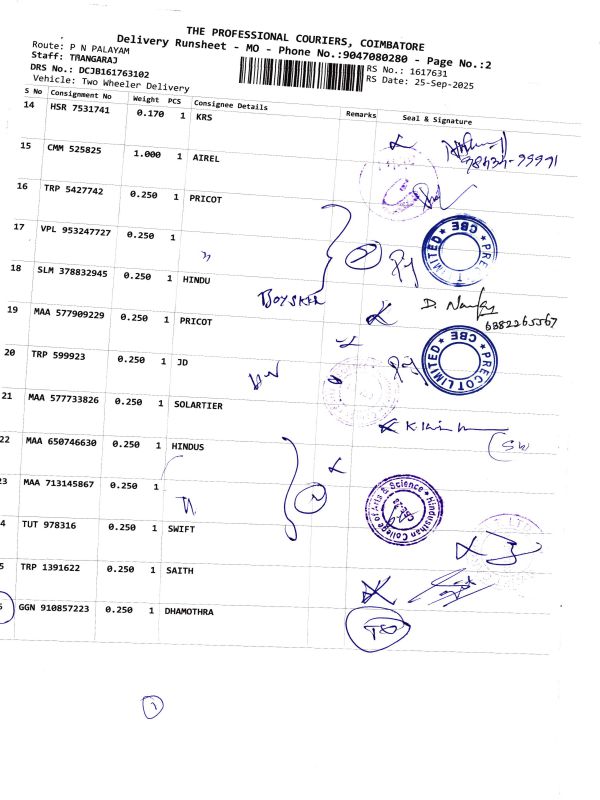 THE PROFESSIONAL COURIERS, COIMBATORE
Delivery Runsheet - MO - Phone No.:9047080280 - Page No.:2
Route: P N PALAYAM
Staff: TRANGARAJ
DRS No.: DCJB161763102
Vehicle: Two Wheeler Delivery
RS No.: 1617631
RS Date: 25-Sep-2025
S No Consignment No Weight PCS Consignee Details Remarks Seal & Signature
14 HSR 7531741 0.170 1 KRS
98434-99991
15 CMM 525825 1.000 1 AIREL
16 TRP 5427742 0.250 1 PRICOT
17 VPL 953247727 0.250 1 "
PRECOT LIMITED * CBE *
18 SLM 378832945 0.250 1 HINDU
19 MAA 577909229 0.250 1 PRICOT
6382265567
20 TRP 599923 0.250 1 JD
PRECOT LIMITED * CBE *
21 MAA 577733826 0.250 1 SOLARTIER
22 MAA 650746630 0.250 1 HINDUS
23 MAA 713145867 0.250 1
Hindusthan College of Arts & Science *
CBE-28
4 TUT 978316 0.250 1 SWIFT
5 TRP 1391622 0.250 1 SAITH
6 GGN 910857223 0.250 1 DHAMOTHRA
1